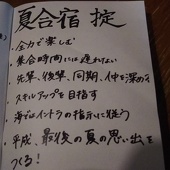 夏合宿 掟
・全力で楽しむ
・集合時間には遅れない
・先輩、後輩、同期、仲を深める
・スキルアップを目指す
・海ではイントラの指示に従う
・平成、最後の夏の思い出を
つくる！